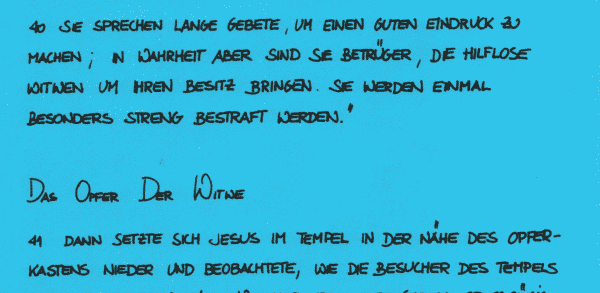 40 SIE SPRECHEN LANGE GEBETE, UM EINEN GUTEN EINDRUCK ZU
MACHEN; IN WAHRHEIT ABER SIND SIE BETRÜGER, DIE HILFLOSE
WITWEN UM IHREN BESITZ BRINGEN. SIE WERDEN EINMAL
BESONDERS STRENG BESTRAFT WERDEN."
DAS OPFER DER WITWE
41 DANN SETZTE SICH JESUS IM TEMPEL IN DER NÄHE DES OPFER-
KASTENS NIEDER UND BEOBACHTETE, WIE DIE BESUCHER DES TEMPELS